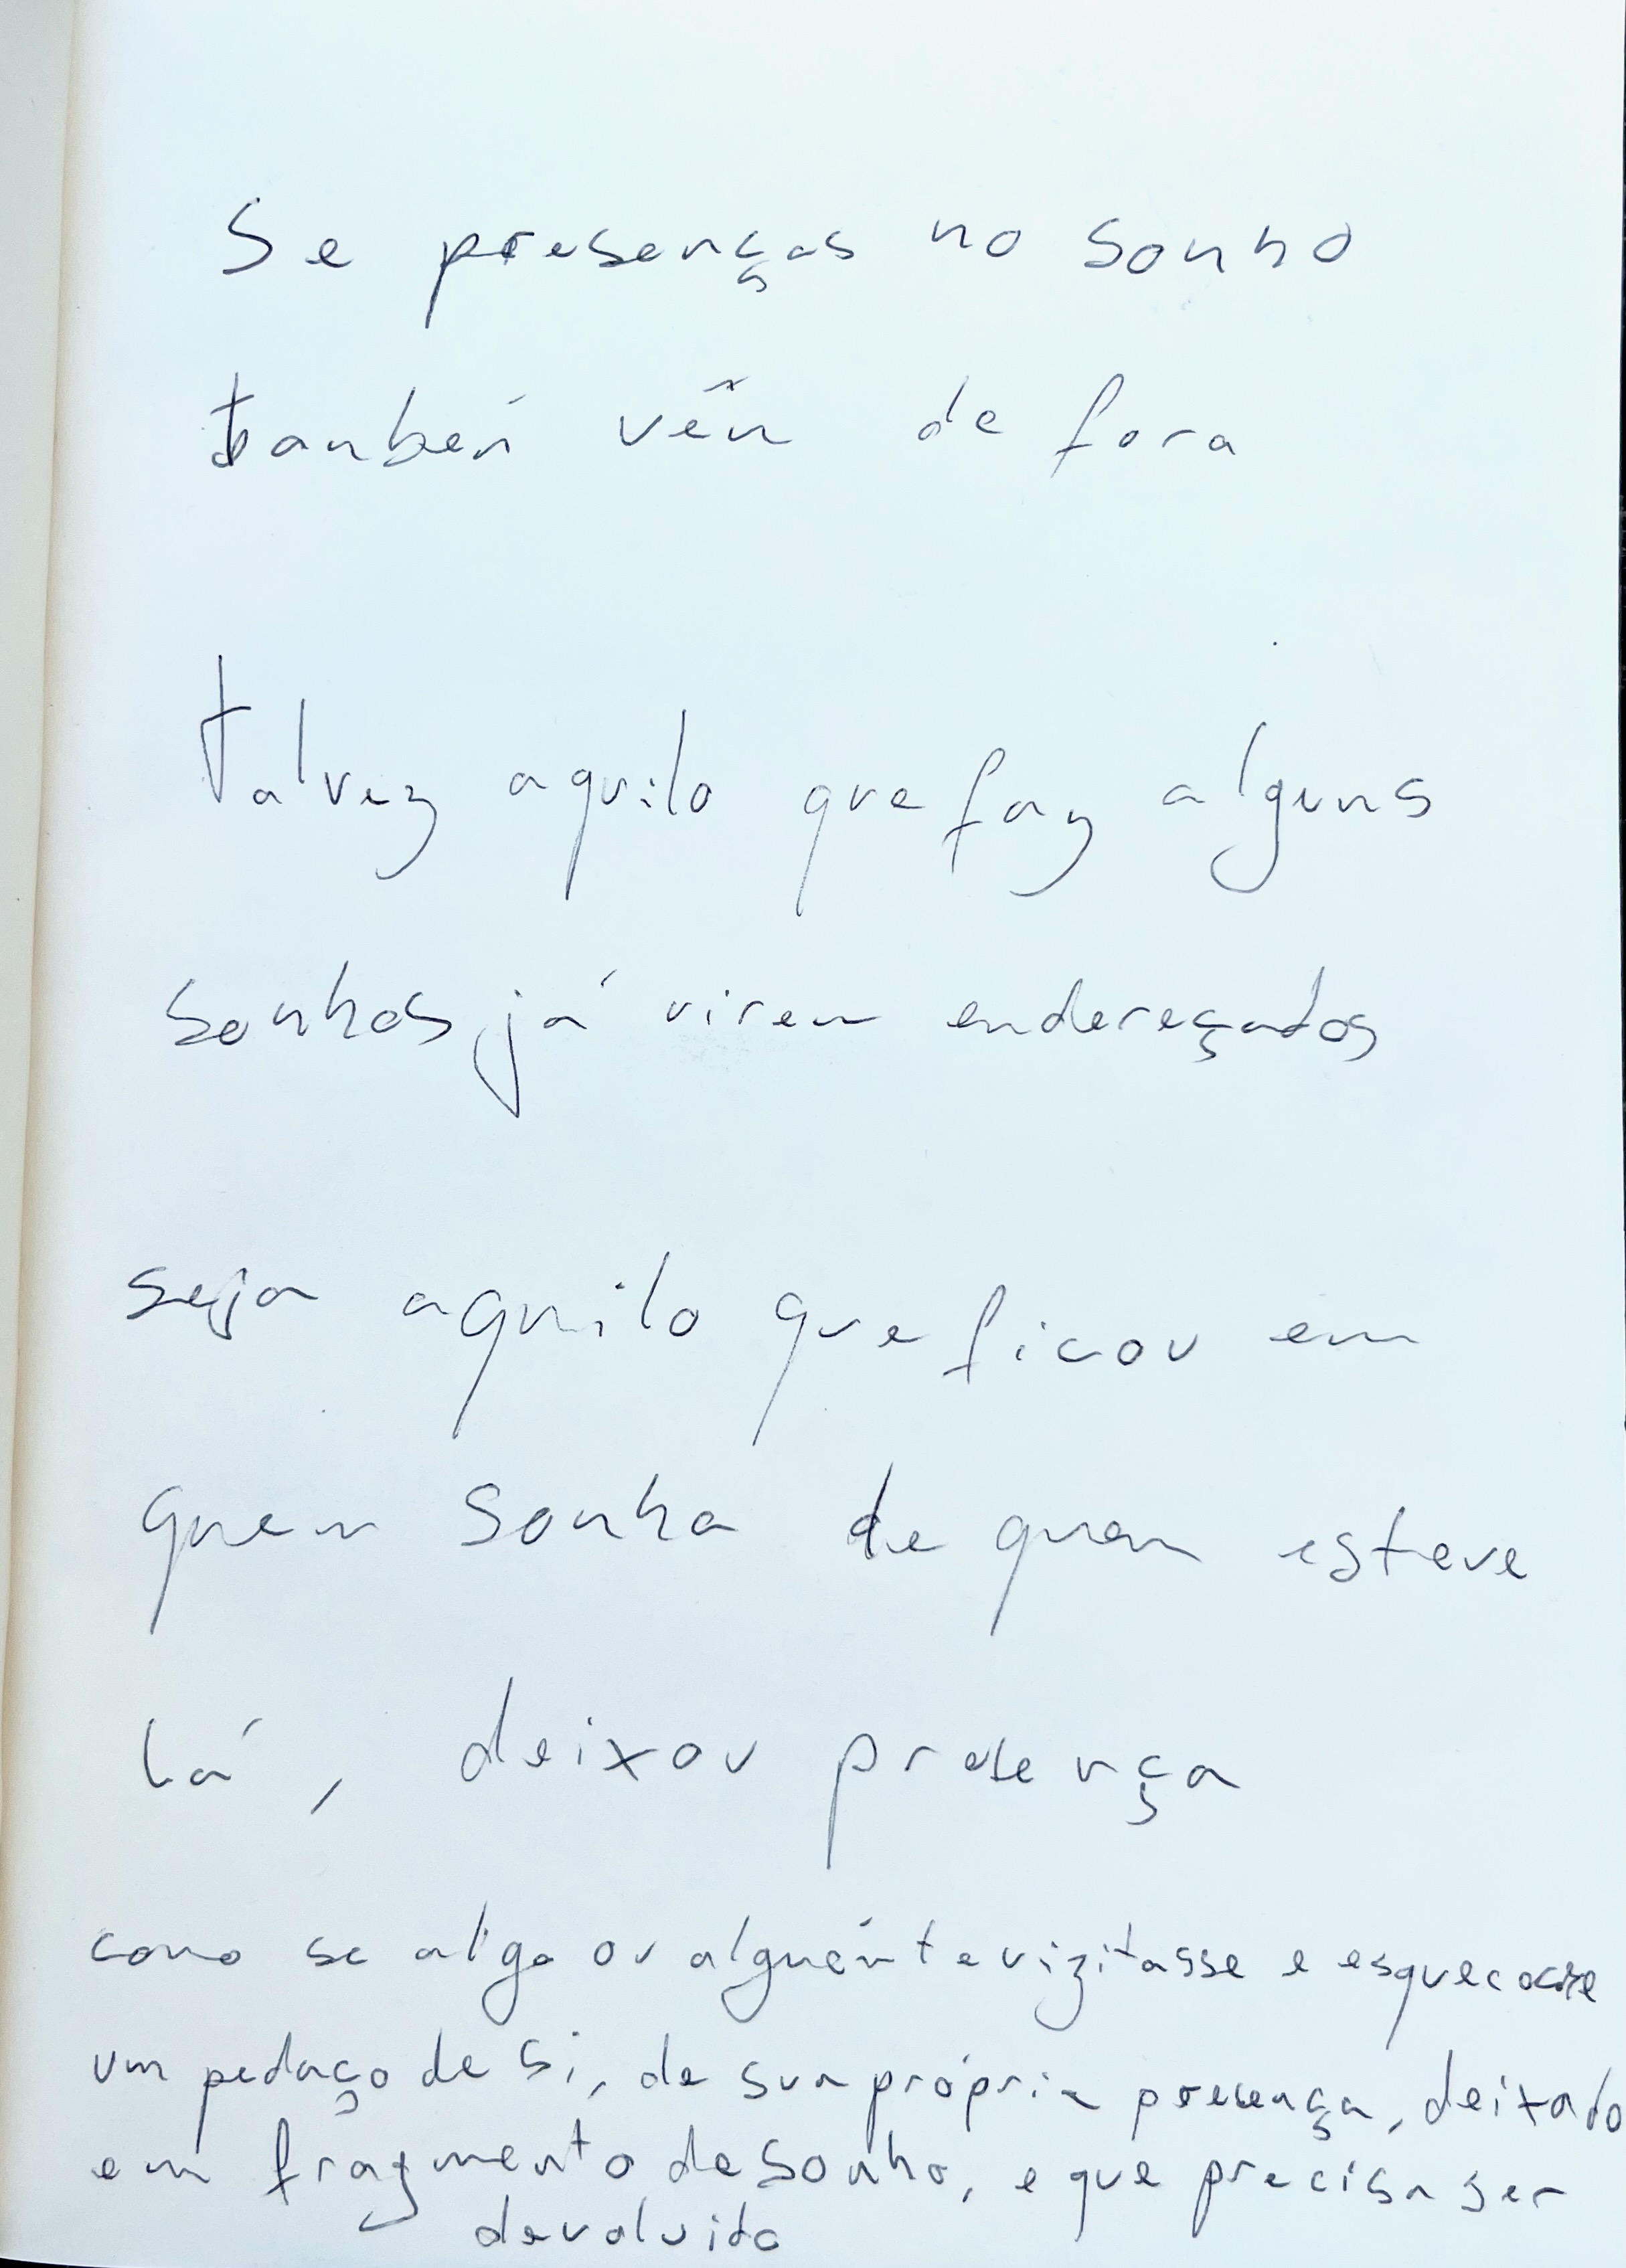 Se presenças no sonho
também vêm de fora
talvez aquilo que faz alguns
sonhos já virem endereçados
seja aquilo que ficou em
quem sonha de quem esteve
lá, deixou presença
como se algo ou alguém te vizitasse e esquecesse
um pedaço de si, de sua própria presença, deixado
em fragmento de sonho, e que precisa ser
devolvido